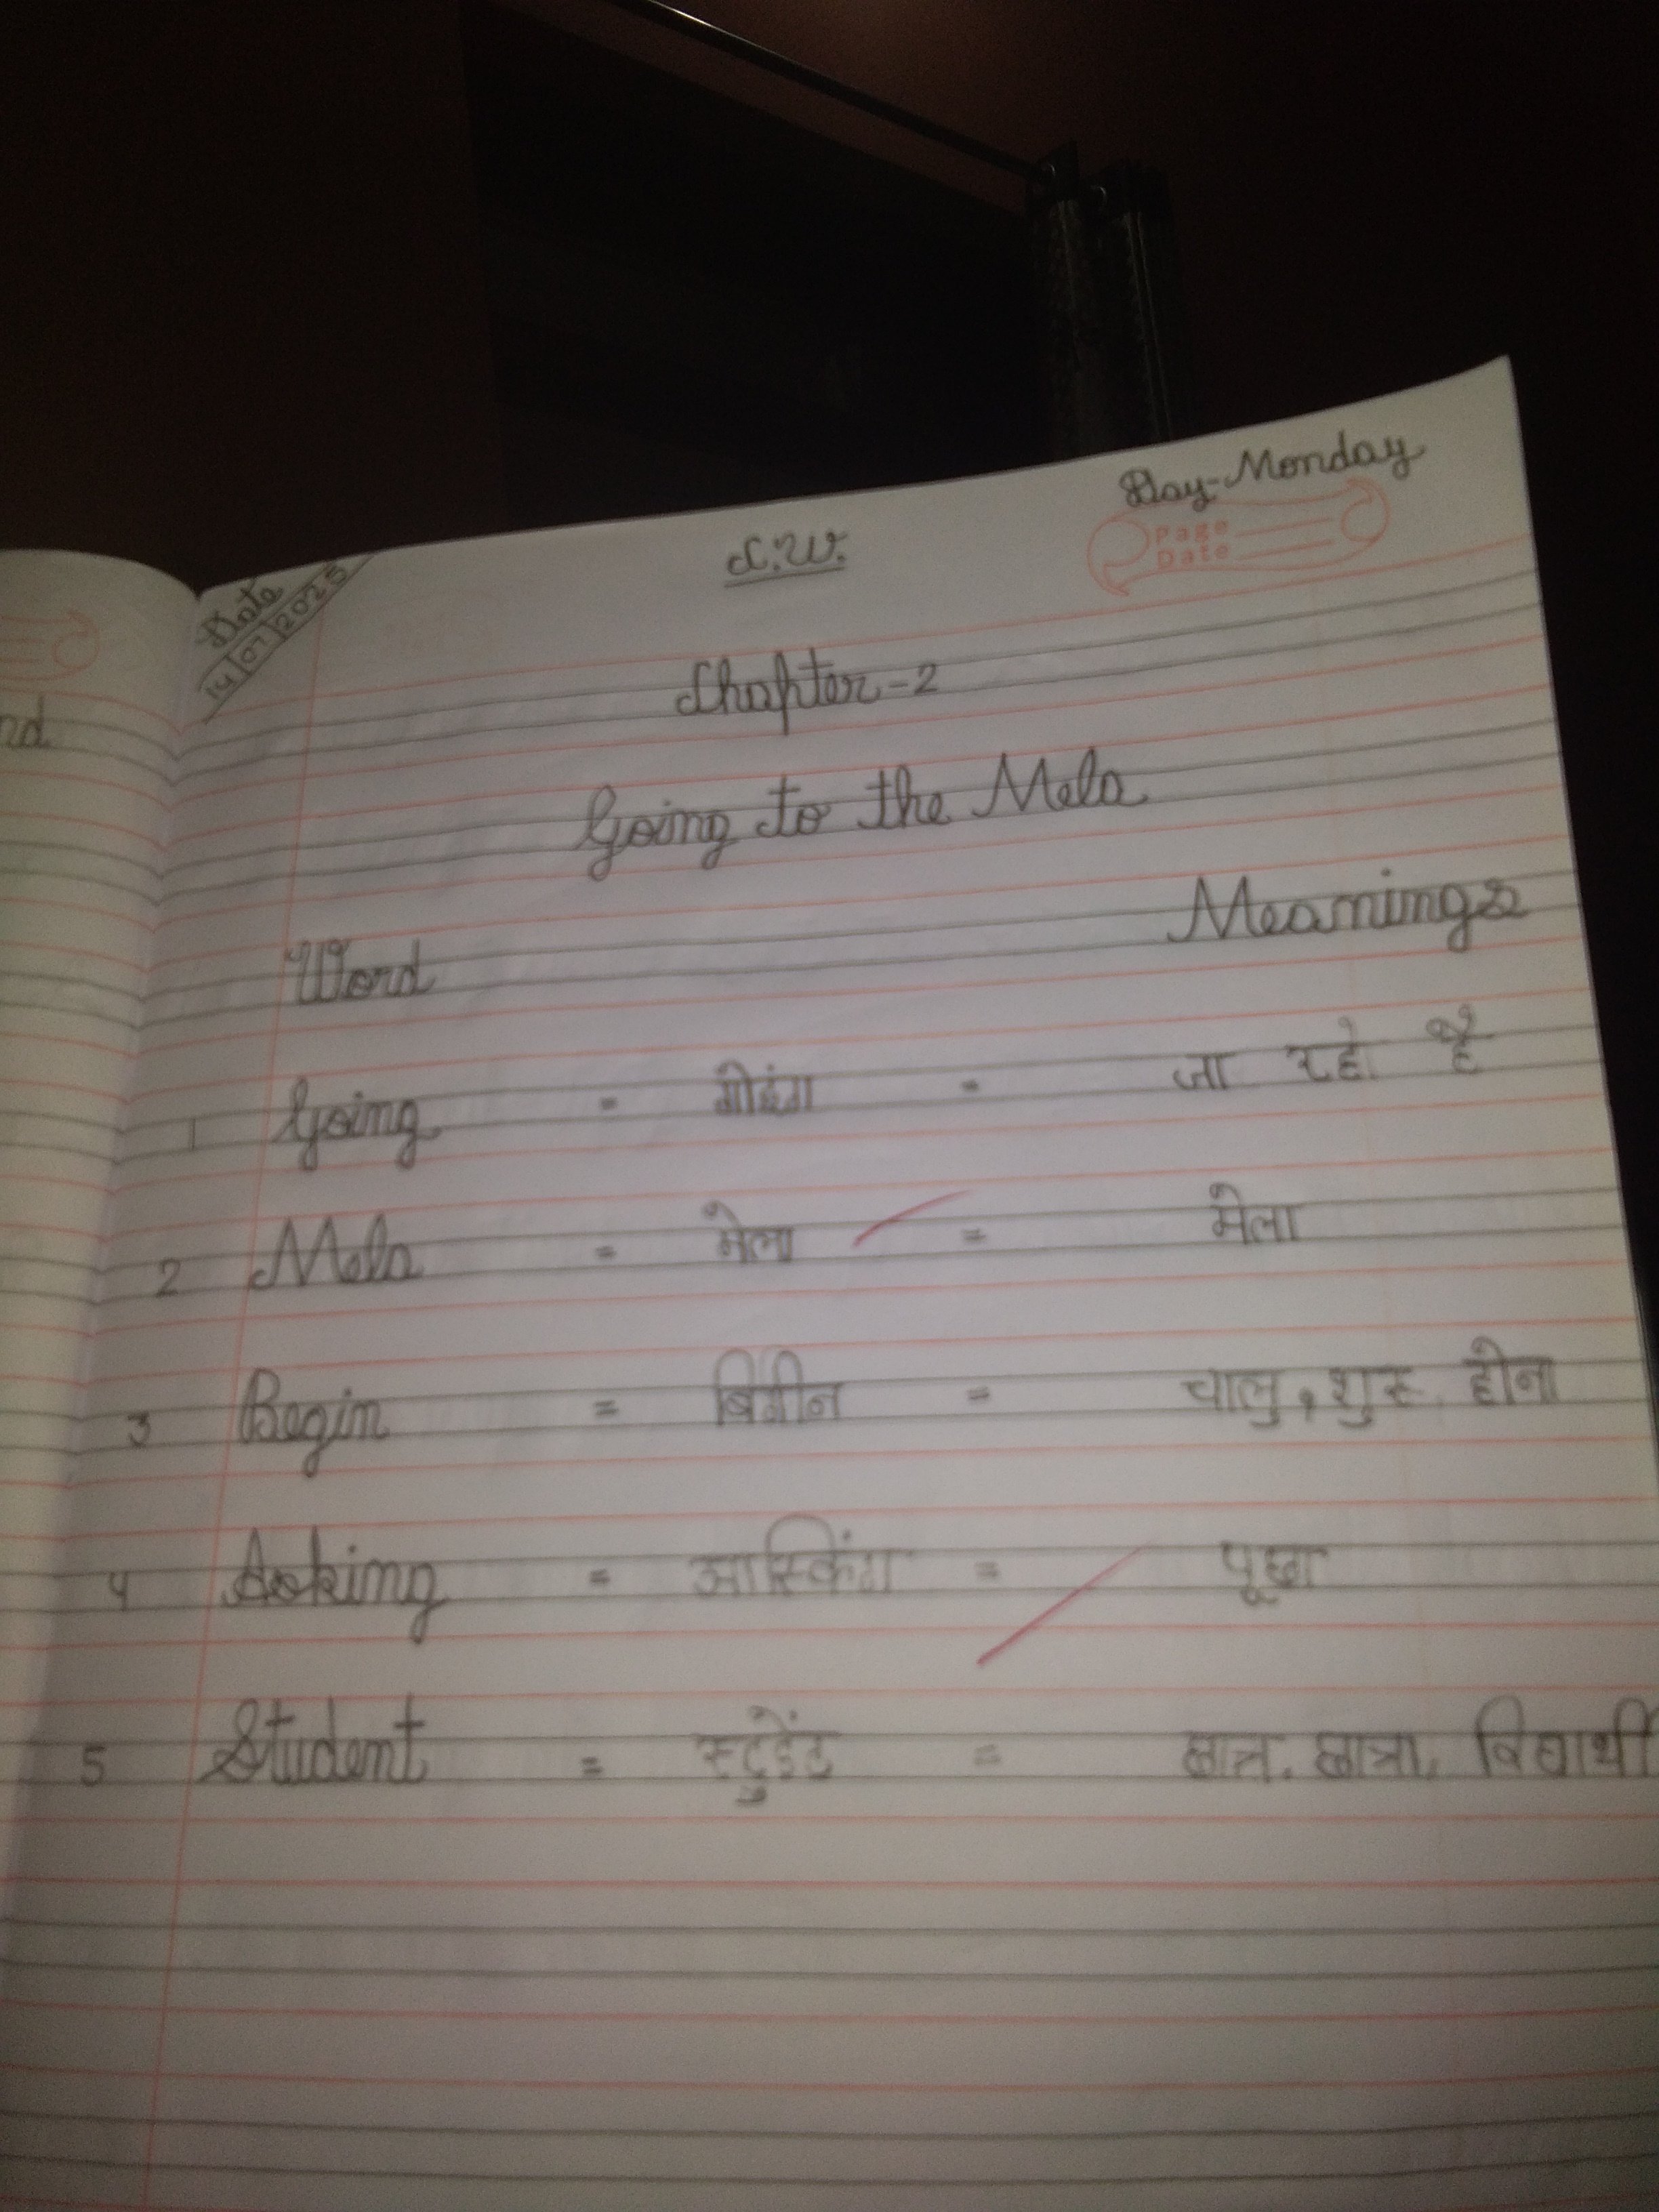 Day-Monday
C.W.
Page
Date
Date
14/07/2025
Chapter-2
Going to the Mela
Word Meanings
1 Going = गोइंग = जा रहे है
2 Mela = मेला = मेला
3 Begin = बिगीन = चालु, शुरू, होना
4 Asking = आस्किंग = पूछा
5 Student = स्टुडेंट = छात्र, छात्रा, विद्यार्थी
nd